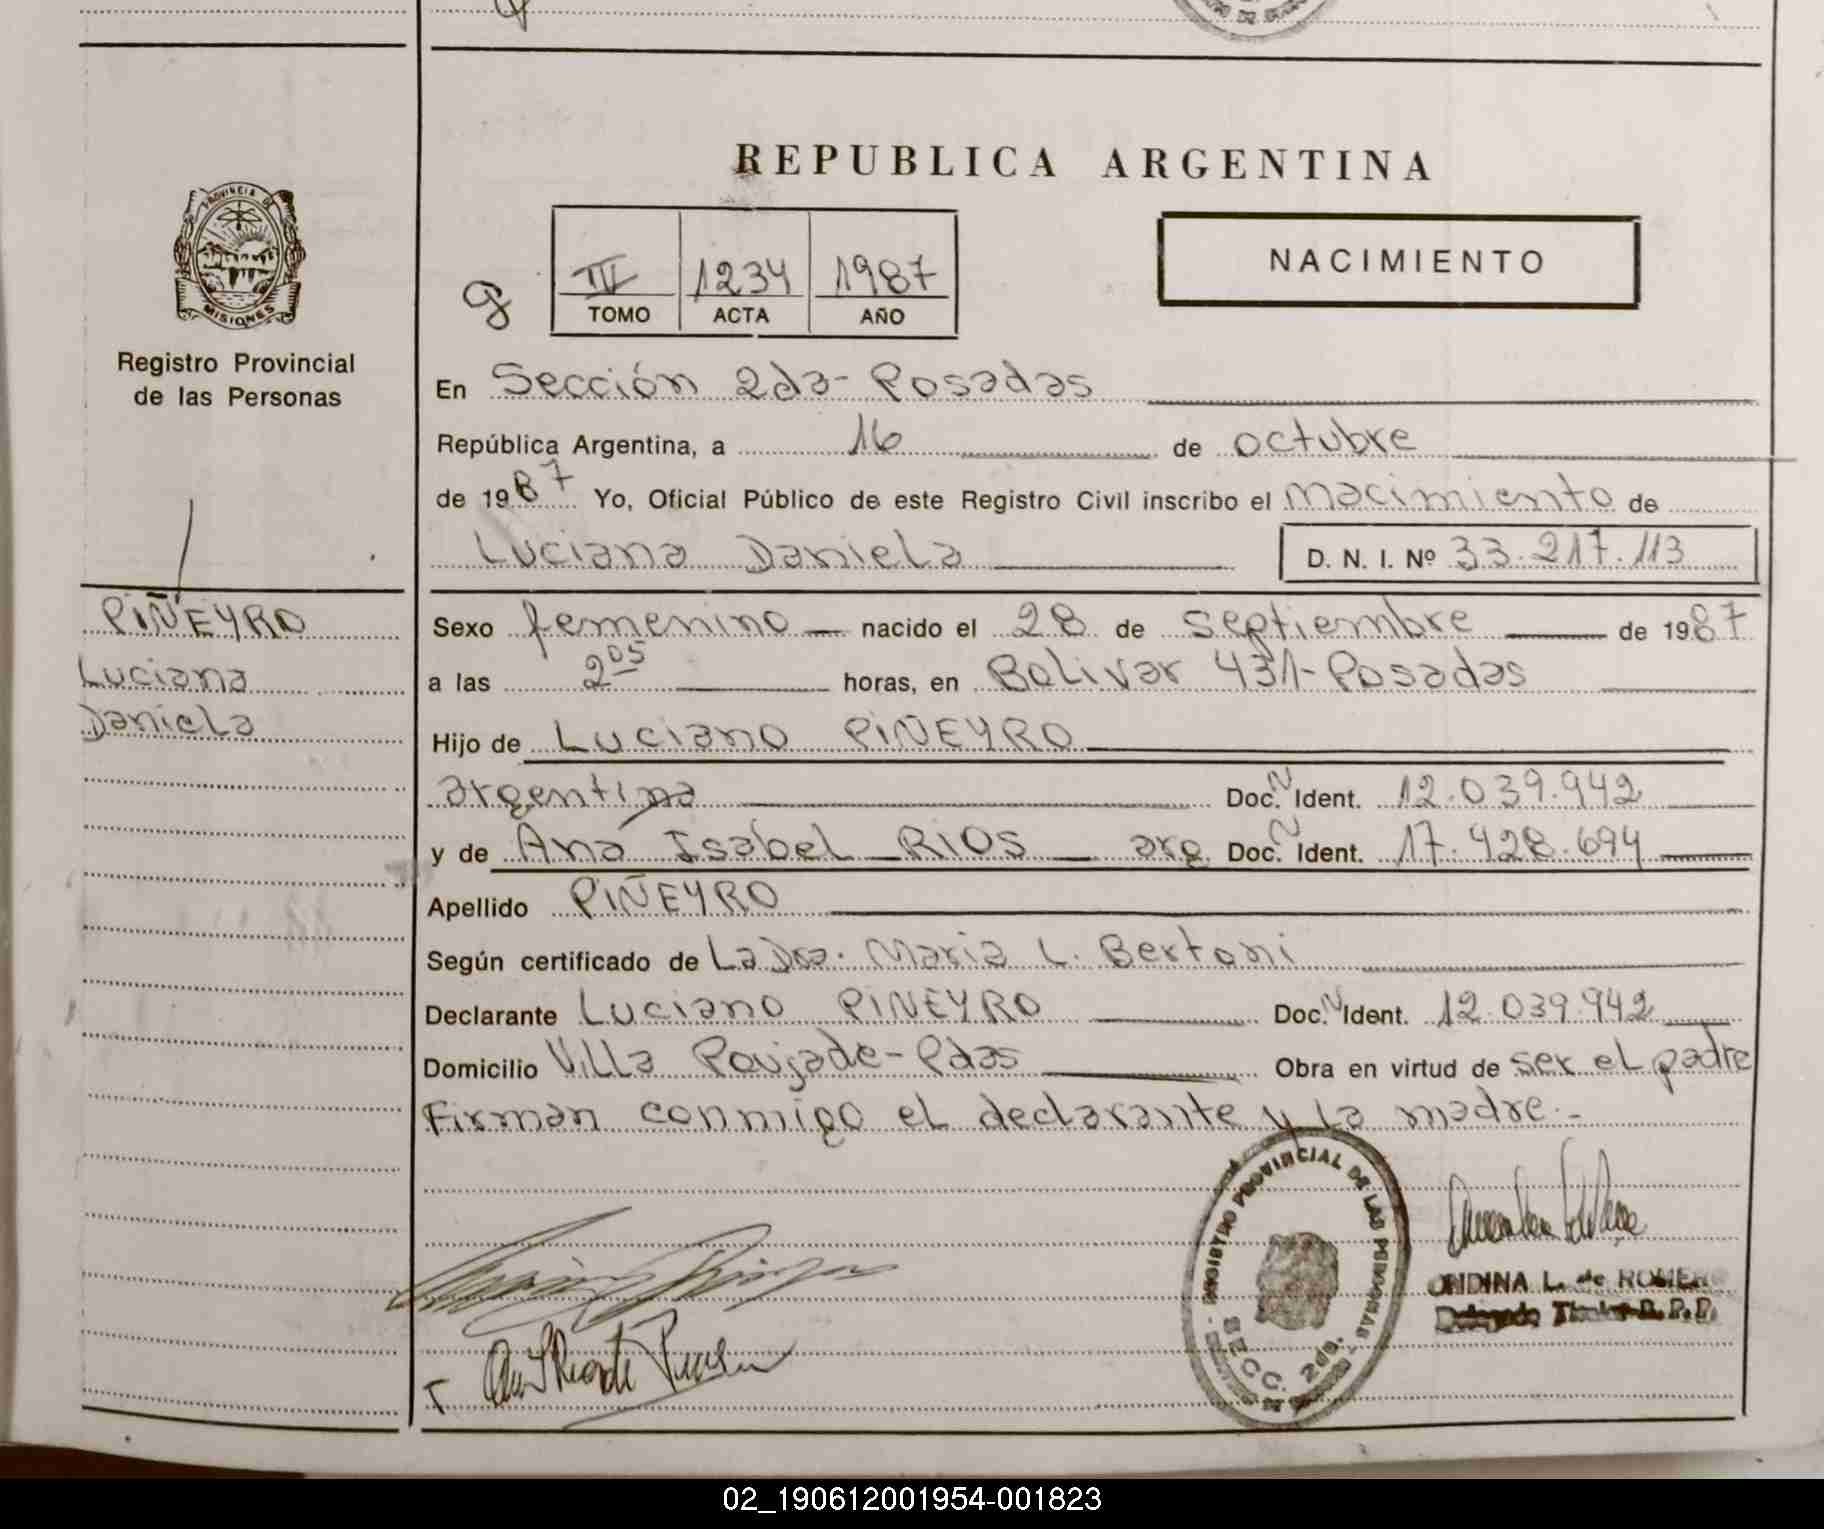 REPUBLICA ARGENTINA
PROVINCIA DE
MISIONES
Registro Provincial
de las Personas
1234 1987
TOMO ACTA AÑO
NACIMIENTO
En Sección 2da - Posadas
República Argentina, a 16 de octubre
de 1987 Yo, Oficial Público de este Registro Civil inscribo el nacimiento de
Luciana Daniela D. N. I. Nº 33.217.113
PIÑEYRO
Luciana
Daniela
Sexo femenino nacido el 28 de septiembre de 1987
a las 2 05 horas, en Bolivar 431 - Posadas
Hijo de Luciano PIÑEYRO
argentina Doc. N Ident. 12.039.942
y de Ana Isabel RIOS arg Doc. N Ident. 17.428.694
Apellido PIÑEYRO
Según certificado de La Dra. Maria L. Bertoni
Declarante Luciano PIÑEYRO Doc. N Ident. 12.039.942
Domicilio Villa Poujade - Pdas Obra en virtud de ser el padre
Firman conmigo el declarante y la madre.-
REGISTRO PROVINCIAL DE LAS PERSONAS
SECC. 2da.
ONDINA L. de ROMERO
Delegado Titular R. P. P.
02_190612001954-001823